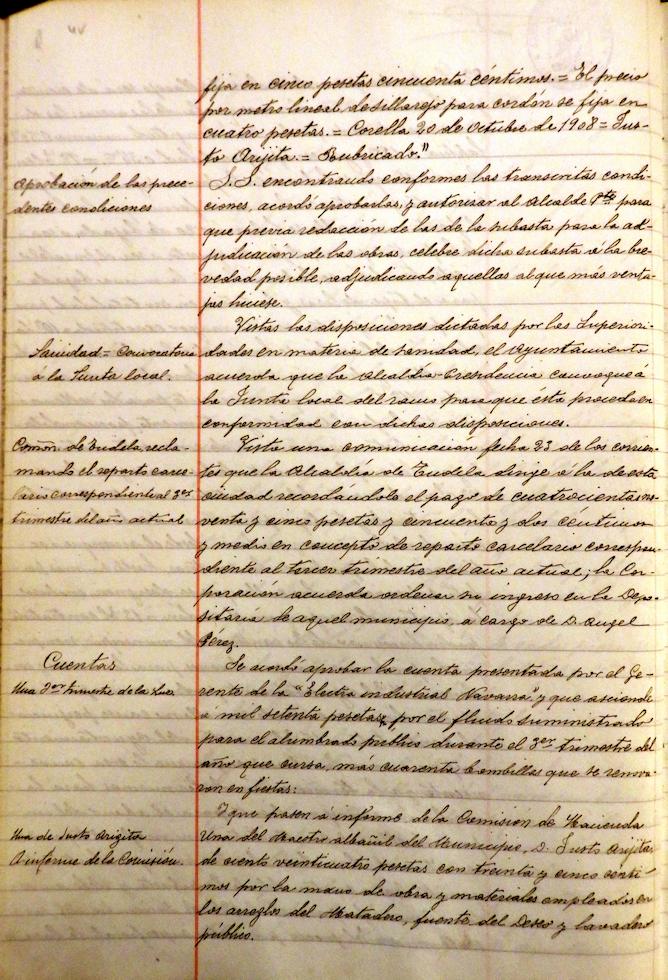 fija en cinco pesetas cincuenta céntimos. = El precio
por metro lineal de sillarejo para cordón se fija en
cuatro pesetas. = Corella 20 de Octubre de 1908 = Jus-
to Arijita. = Rubricado."
Aprobación de las prece-
dentes condiciones
S.S. encontrando conformes las transcritas condi-
ciones, acordó aprobarlas, y autorizar al Alcalde Pte para
que previa redacción de las de la subasta para la ad-
judicación de las obras, celebre dicha subasta a la bre-
vedad posible, adjudicando aquellas al que más venta-
jas hiciese.
Sanidad = Convocatoria
á la Junta local.
Vistas las disposiciones dictadas por las Superiori-
dades en materia de sanidad, el Ayuntamiento
acuerda que la Alcaldía-Presidencia convoque á
la Junta local del ramo para que ésta proceda en
conformidad con dichas disposiciones.
Comon. de Tudela, recla-
mando el reparto carce-
lario correspondiente al 3er
trimestre del año actual
Vista una comunicación fecha 23 de los corrien-
tes que la Alcaldía de Tudela dirige á la de esta
ciudad recordándole el pago de cuatrocientas no-
venta y cinco pesetas y cincuenta y dos céntimos
y medio en concepto de reparto carcelario correspon-
diente al tercer trimestre del año actual; la Cor-
poración acuerda ordenar su ingreso en la Depo-
sitaría de aquel municipio, á cargo de D. Angel
Pérez.
Cuentas
Una 3er trimestre de la Luz
Se acordó aprobar la cuenta presentada por el Ge-
rente de la "Electra industrial Navarra" y que asciende
á mil setenta pesetas, por el fluido suministrado
para el alumbrado publico durante el 3er trimestre del
año que cursa, más cuarenta bombillas que se renova-
ron en fiestas:
Una de Justo Arigita
A informe de la Comisión.
Y que pasen á informe de la Comision de Hacienda
Una del Maestro albañil del Municipio, D. Justo Arijita
de ciento veinticuatro pesetas con treinta y cinco cénti-
mos por la mano de obra y materiales empleados en
los arreglos del Matadero, fuente del Deseo y lavadero
público.